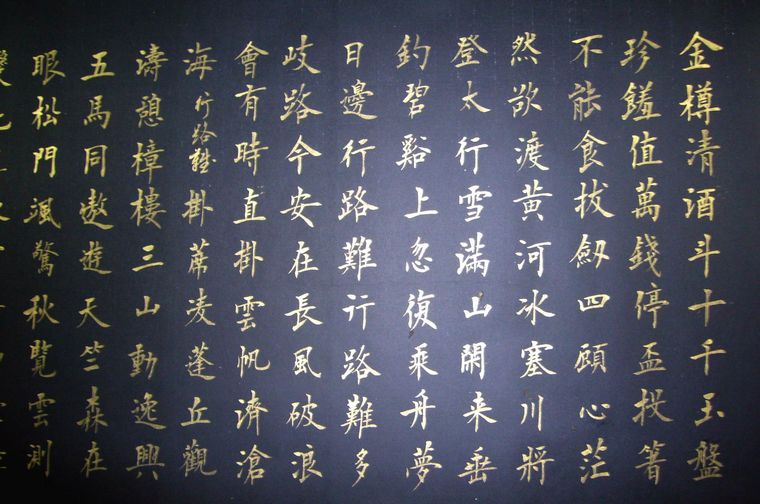 金樽清酒斗十千玉盤
珍饈值萬錢停盃投箸
不能食拔劔四顧心茫
然欲渡黃河冰塞川將
登太行雪滿山閑来垂
釣碧谿上忽復乘舟夢
日邊行路難行路難多
歧路今安在長風破浪
會有時直掛雲帆濟滄
海行路難掛蓆凌蓬丘觀
濤憩樟樓三山動逸興
五馬同遨遊天竺森在
眼松門颯驚秋覽雲測